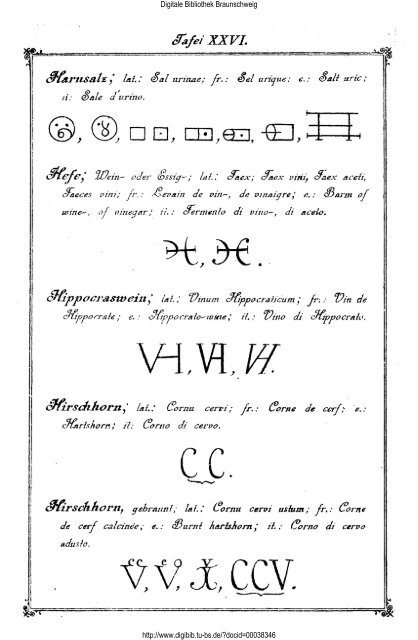 Digitale Bibliothek Braunschweig
Tafel XXVI.
Harnsalz; lat.: Sal urinae; fr.: Sel urique; e.: Salt uric;
it: Sale d'urino.
Hefe; Wein- oder Essig-; lat.: Faex; Faex vini, Faex aceti,
Faeces vini; fr.: Levain de vin-, de vinaigre; e.: Barm of
wine-, of vinegar; it.: Fermento di vino-, di aceto.
Hippocraswein; lat.: Vinum Hippocraticum; fr.: Vin de
Hippocrate; e.: Hippocrate-wine; it.: Vino di Hippocrato.
VH, VH, VH.
Hirschhorn; lat.: Cornu cervi; fr.: Corne de cerf; e.:
Hartshorn; it: Corno di cervo.
C C.
Hirschhorn, gebrannt; lat.: Cornu cervi ustum; fr.: Corne
de cerf calcinée; e.: Burnt hartshorn; it.: Corno di cervo
adusto.
CCV.
http://www.digibib.tu-bs.de/?docid=00038346